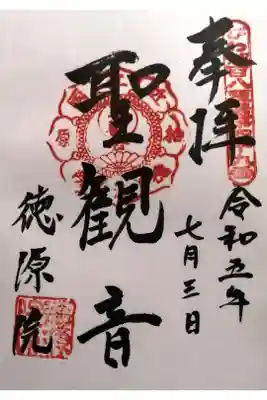 奉拝
令和五年
七月三日
聖観音
徳源院